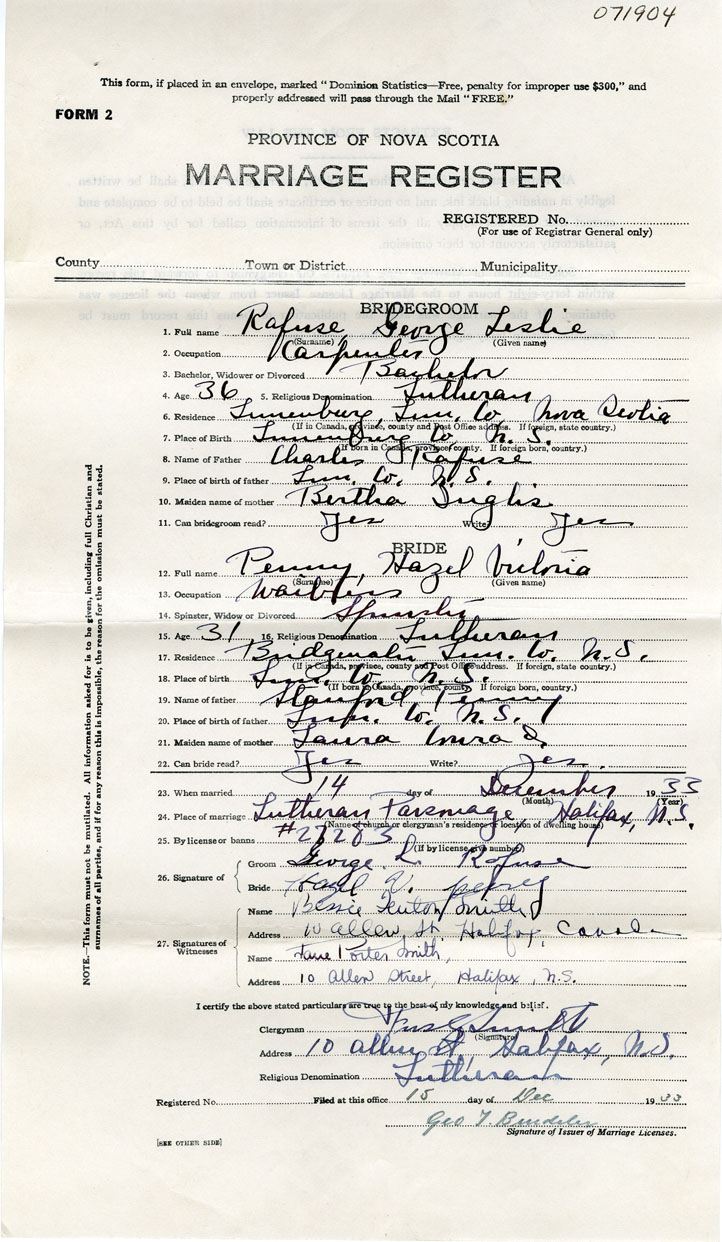 071904
This form, if placed in an envelope, marked "Dominion Statistics—Free, penalty for improper use $300," and
properly addressed will pass through the Mail "FREE."
FORM 2
PROVINCE OF NOVA SCOTIA
MARRIAGE REGISTER
REGISTERED No.
(For use of Registrar General only)
County Town or District Municipality
BRIDEGROOM
1. Full name Rafuse, George Leslie
(Surname) (Given name)
2. Occupation Carpenter
3. Bachelor, Widower or Divorced Bachelor
4. Age 36 5. Religious Denomination Lutheran
6. Residence Lunenburg, Lun. Co. Nova Scotia
(If in Canada, province, county and Post Office address. If foreign, state country.)
7. Place of Birth Lunenburg Co. N. S.
(If born in Canada, province, county. If foreign born, country.)
8. Name of Father Charles Rafuse
9. Place of birth of father Lun. Co. N. S.
10. Maiden name of mother Bertha Inglis
11. Can bridegroom read? Yes Write? Yes
BRIDE
12. Full name Penny, Hazel Victoria
(Surname) (Given name)
13. Occupation Waitress
14. Spinster, Widow or Divorced Spinster
15. Age 31 16. Religious Denomination Lutheran
17. Residence Bridgewater Lun. Co. N. S.
(If in Canada, province, county and Post Office address. If foreign, state country.)
18. Place of birth Lun. Co. N. S.
(If born in Canada, province, county. If foreign born, country.)
19. Name of father Stanford Penny
20. Place of birth of father Lun. Co. N. S.
21. Maiden name of mother Laura
22. Can bride read? Yes Write? Yes.
23. When married 14 day of December 1933
(Month) (Year)
24. Place of marriage Lutheran Parsonage, Halifax, N.S.
(Name of church or clergyman's residence or location of dwelling house)
25. By license or banns #27203
(If by license give number)
26. Signature of
Groom George L. Rafuse
Bride Hazel V. penney
27. Signatures of Witnesses
Name Bessie Fenton Smith
Address 10 allen St. Halifax, Canada
Name Porter Smith,
Address 10 Allen Street, Halifax, N.S.
I certify the above stated particulars are true to the best of my knowledge and belief.
Clergyman
(Signature)
Address 10 allen St Halifax, N.S.
Religious Denomination Lutheran
Registered No. Filed at this office 15 day of Dec 1933
Geo T.
Signature of Issuer of Marriage Licenses.
[SEE OTHER SIDE]
NOTE.—This form must not be mutilated. All information asked for is to be given, including full Christian and
surnames of all parties, and if for any reason this is impossible, the reason for the omission must be stated.